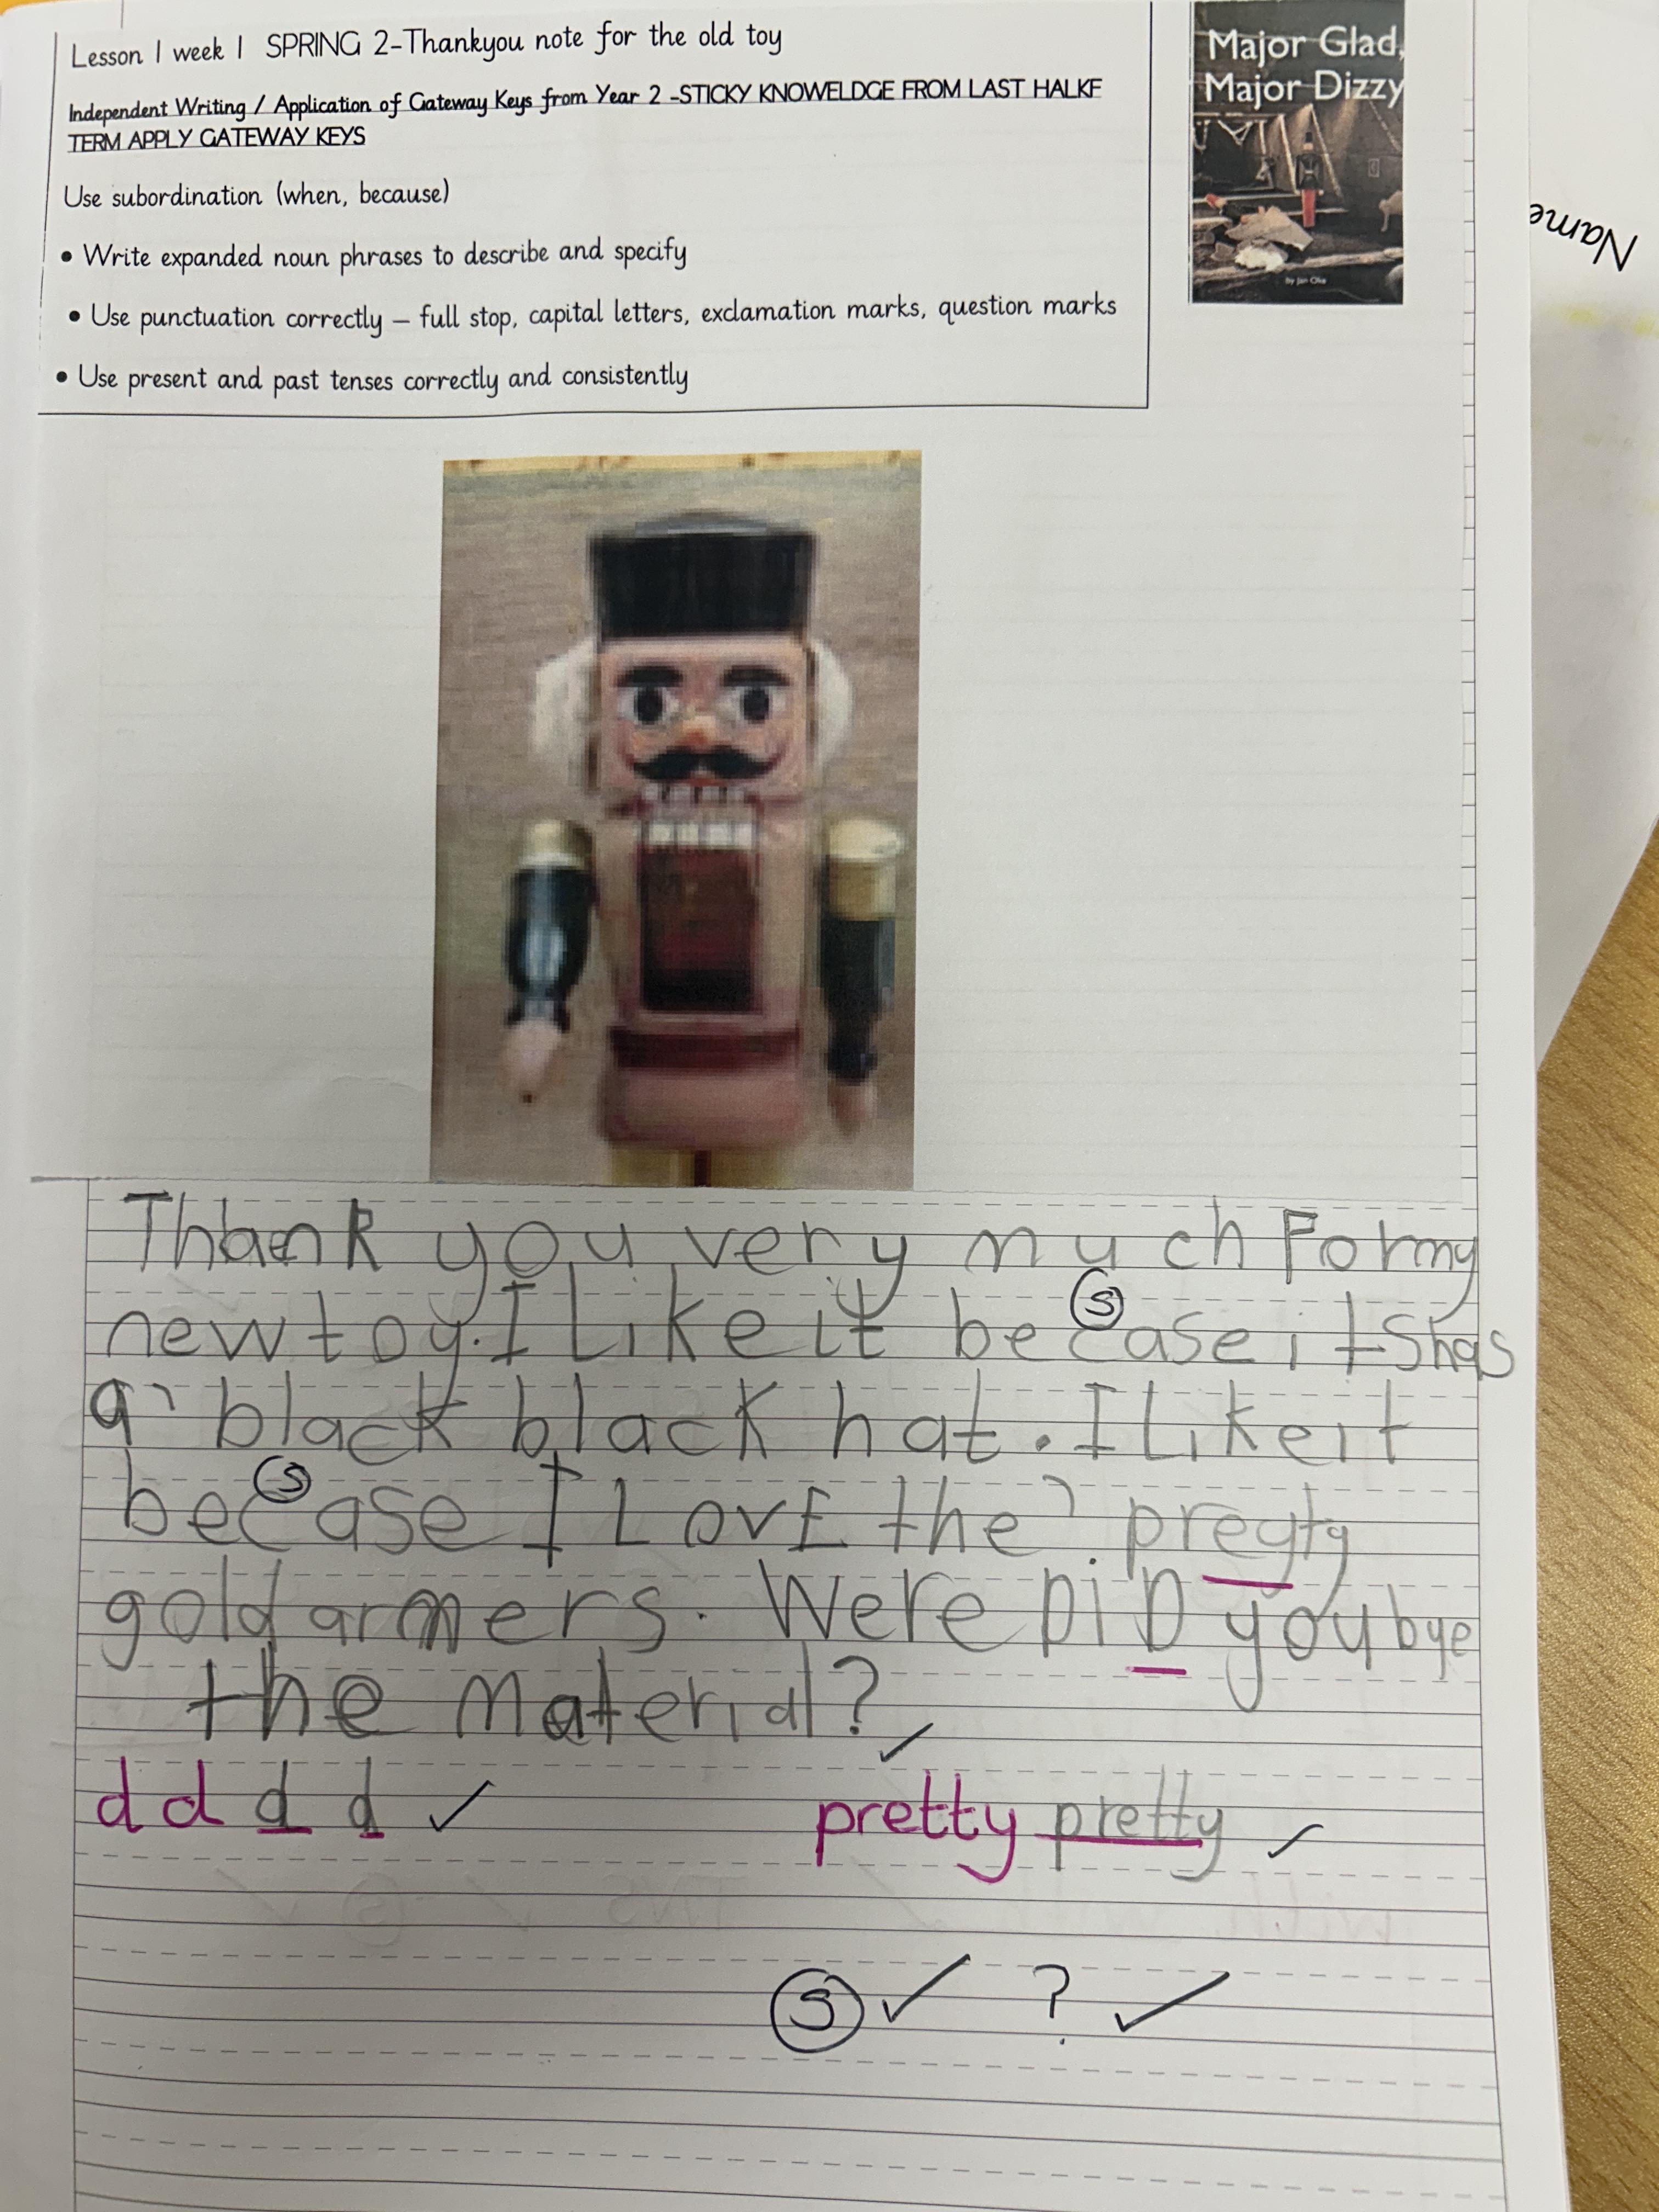 Lesson 1 week 1 SPRING 2-Thankyou note for the old toy
Independent Writing / Application of Gateway Keys from Year 2 -STICKY KNOWELDGE FROM LAST HALKF
TERM APPLY GATEWAY KEYS
Use subordination (when, because)
• Write expanded noun phrases to describe and specify
• Use punctuation correctly – full stop, capital letters, exclamation marks, question marks
• Use present and past tenses correctly and consistently
Major Glad,
Major Dizzy
by Jan Oke
Name
Thank you very much For my
new toy. I Like it becase itshas
a black black hat. I Like it
becase I LovE the preyty
gold armers. Were DiD you bye
the Material?
S
S
d d d d ✓
pretty pretty ✓
S ✓ ? ✓